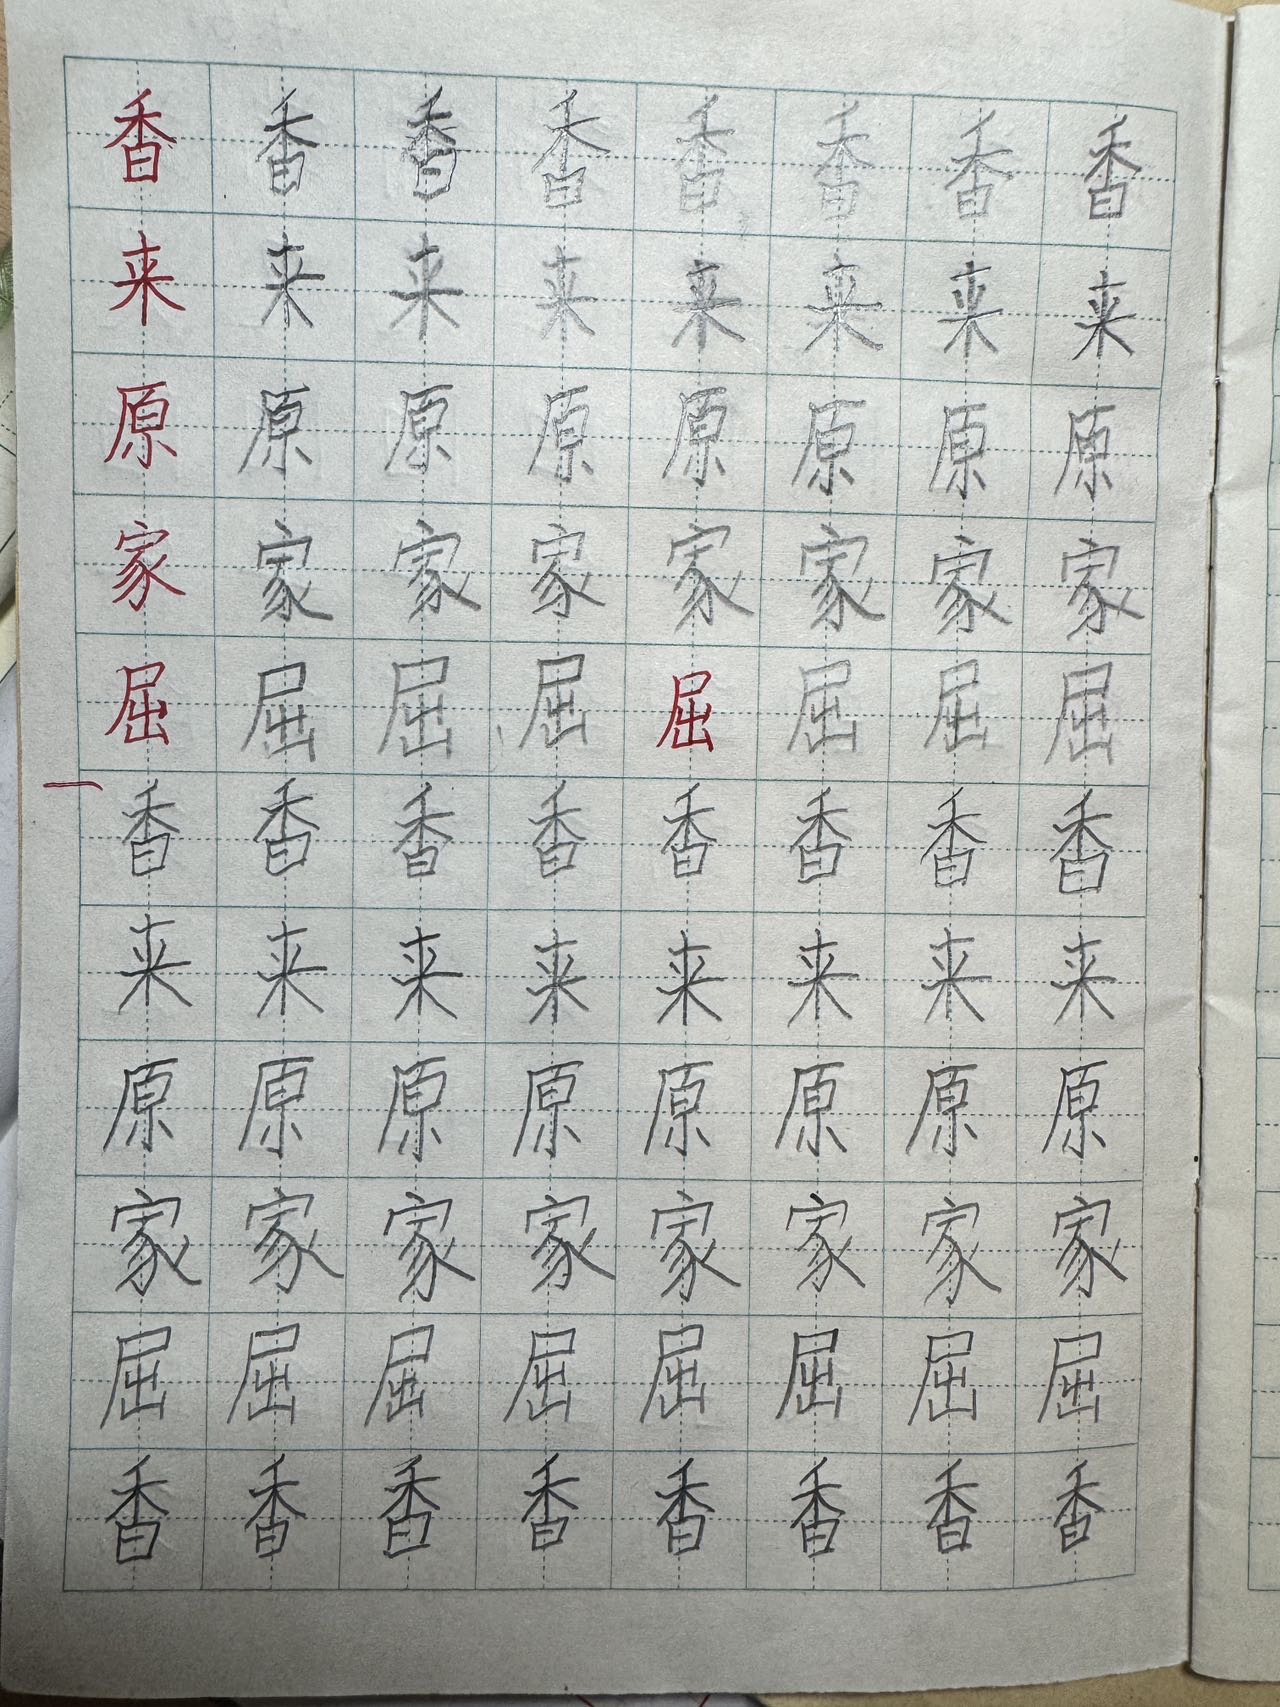 香香香香香香香香
来来来来来来来来
原原原原原原原原
家家家家家家家家
屈屈屈屈屈屈屈屈
香香香香香香香香
来来来来来来来来
原原原原原原原原
家家家家家家家家
屈屈屈屈屈屈屈屈
香香香香香香香香